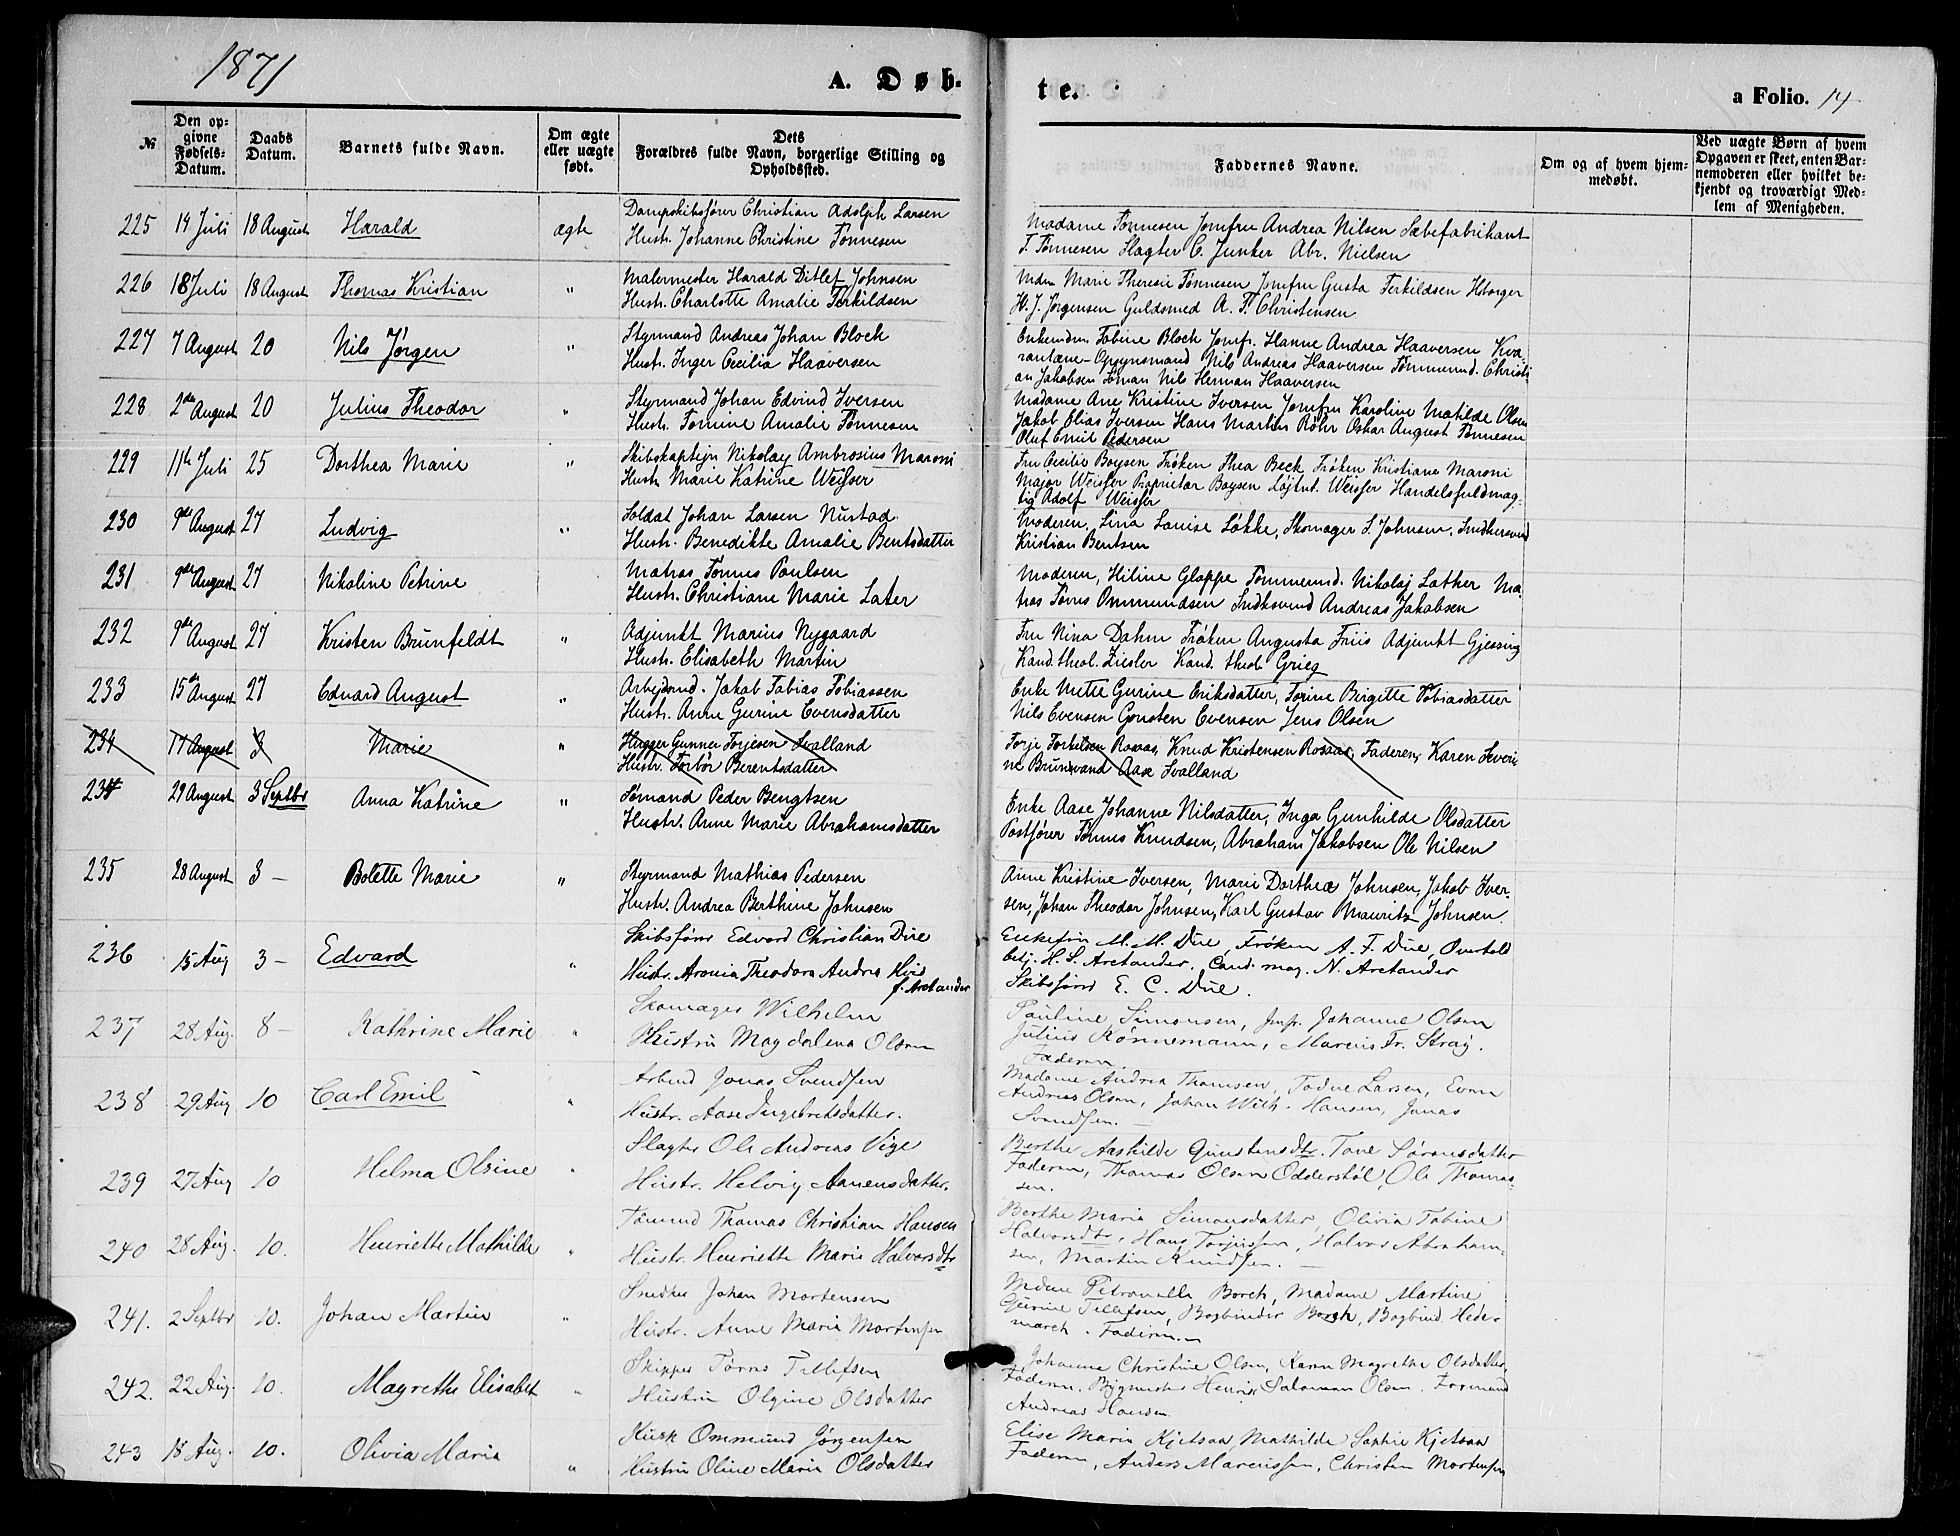 1871
A. Døb-
te.
a Folio. 14
№
Den opgivne Fødsels-Datum.
Daabs Datum.
Barnets fulde Navn.
Om ægte eller uægte født.
Dets Forældres fulde Navn, borgerlige Stilling og Opholdssted.
Faddernes Navne.
Om og af hvem hjemmedøbt.
Ved uægte Børn af hvem
Opgaven er skeet, enten Bar-
nemoderen eller hvilket be-
kjendt og troværdigt Med-
lem af Menigheden.
225 14 Juli 18 August Harald ægte Dampskibsfører Christian Adolph Larsen
Hustr. Johanne Christine Tønnesen
Madame Tønnesen Jomfru Andrea Nilsen Sæbefabrikant
T. Tønnesen Slagter C. Junker Abr. Nielsen
226 18 Juli 18 August Thomas Kristian " Malermester Harald Ditlef Johnsen
Hustr. Charlotte Amalie Terkildsen
Mdm Marie Theresie Tønnesen Jomfru Gusta Terkildsen
H. J. Jørgensen Guldsmed A. F. Christensen
227 7 August 20 Nils Jørgen " Styrmand Andreas Johan Bloch
Hustr. Inger Cecilia Haaversen
Enkemdm. Tobine Bloch Jomfr. Hanne Andrea Haaversen Kva-
rantæne-Opsynsmand Nils Andreas Haaversen Tømmermd. Christi-
an Jakobsen Søman Nils Herman Haaversen
228 2de August 20 Julius Theodor " Styrmand Johan Edvind Iversen
Hustr. Tomine Amalie Tønnesen
Madame Ane Kristine Iversen Jomfru Karoline Matilde Olsen
Jakob Elias Iversen Hans Martin Röhr Oskar August Tønnesen
Oluf Emil Pedersen
229 11te Juli 25 Dorthea Marie " Skibskaptejn Nikolay Ambrosius Maroni
Hustr. Marie Katrine Weisser
Fru Cecilie Boysen Frøken Thea Beck Frøken Kristiane Maroni
Major Weisser Proprietær Boysen Løjtnt. Weisser Handelsfuldmæg-
tig Adolf Weisser
230 9de August 27 Ludvig " Soldat Johan Larsen Nustad
Hustr. Benedikte Amalie Bentsdatter
Moderen, Lina Louise Løkke, Skomager S. Johnsen, Snedkersvend
Kristian Bentsen
231 9de August 27 Nikoline Petrine Matros Tønnes Poulsen
Hustr. Christiane Marie Later
Moderen, Hiline Gloppe Tømmermd. Nikolaj Lather Ma-
tros Tønnes Ommundsen Snedksvend Andreas Jakobsen
232 9de August 27 Kristen Brunfeldt " Adjunkt Marius Nygaard
Hustr. Elisabeth Martin
Fru Nina Dahm Frøken Augusta Friis Adjunkt Gjessing
Kand. theol. Ziesler Kand. theol. Grieg
233 15de August 27 Edvard August " Arbejdsmd. Jakob Tobias Tobiassen
Hustr. Anne Gurine Evensdatter
Enke Mette Gurine Eriksdatter, Torine Birgitte Tobiasdatter
Nils Evensen Gunsten Evensen Jens Olsen
234 11 August 3 Marie " Hugger Gunner Torjesen Svalland
Hustr. Torbør Berentsdatter
Torje Torkelsen Rosaas, Knud Kristensen Rosaas, Faderen, Karen Severi-
ne Brunsvand Aase Svalland
234 29 August 3 Septbr Anna Katrine " Sømand Peder Bengtsen
Hustr. Anne Marie Abrahamsdatter
Enke Aase Johanne Nilsdatter, Inga Gunhilde Olsdatter
Postfører Tønnes Knudsen, Abraham Jakobsen Ole Nilsen
235 28 August 3 - Bolette Marie " Styrmand Mathias Pedersen
Hustr. Andrea Berthine Johnsen
Anne Kristine Iversen, Marie Dorthea Johnsen, Jakob Iver-
sen, Johan Theodor Johnsen, Karl Gustav Mauritz Johnsen
236 15 Aug 3 - Edvard " Skibsfører Edvard Christian Due
Hustr. Aronia Theodora Andrea Hvis
f. Arctander
Enkefru M. M. Due, Frøken A. F. Due, Overtold
betj. H. S. Arctander, Cand. mag. N. Arctander
Skibsfører E. C. Due.
237 28 Aug. 8 - Kathrine Marie " Skomager Wilhelm
Hustru Magdalena Olsen
Pauline Simonsen, Jmfr. Johanne Olsen
Julius Rønnemann, Marcus Fr. Stray.
Faderen
238 29 Aug 10 Carl Emil " Arbmd Jonas Svendsen
Hustr. Aase Ingebretsdatter.
Madame Andrea Thomsen, Tadne Larsen, Even
Andreas Olsen, Johan Wilh. Hansen, Jonas
Svendsen.
239 27 Aug 10 Helma Olsine " Slagter Ole Andreas Vige
Hustr. Helvig Aanensdatter.
Berthe Aashilde Gunstensdtr. Tone Sørensdatter
Faderen, Thomas Olsen Odderstøl, Ole Thomas-
sen.
240 28 Aug. 10. Henriette Mathilde " Tømmd Thomas Christian Hansen
Hustr. Henriette Marie Halvorsdtr
Berthe Maria Simonsdatter, Olivia Tobine
Halvorsdtr, Hans Torjussen, Halvor Abraham-
sen, Martin Knudsen.
241. 2 Septbr 10. Johan Martin " Snedker Johan Mortensen
Hustr. Anne Maria Mortensen
Mdme Petronelle Borch, Madame Martine
Gurine Tellefsen, Bogbinder Borch, Bogbind. Hede-
march. Faderen
242. 22 Aug. 10. Magrethe Elisabet " Skipper Tørres Tellefsen
Hustru Olgine Olsdatter
Johanne Christine Olsen, Karen Magrethe Olsdatter,
Faderen. Bygmester Henrik Salomon Olsen.
Andreas Hansen
243 18 Aug. 10. Olivia Maria " Kusk Ommund Jørgensen
Hustru Oline Maria Olsdatter
Elise Maria Kjetsaa Mathilde Sophie Kjetsaa
Faderen, Anders Marcussen, Christen Mortensen